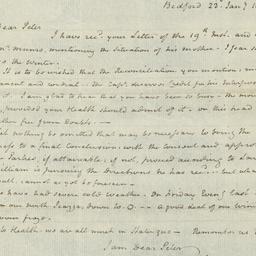 Bedford 22. Jany 1
Dear Peter
I have recd. your Letter of the 19th Inst. and
Munro, mentioning the Situation of his mother. I fear s
the Winter.
It is to be wished that the Reconciliation you mention, m
anent and cordial. The Capt. deserves Credit for his Interpos
I am glad to hear that you have been so busy. the mo
provided your Health should admit of it. on this head
be free from Doubts. —
nothing be omitted that may be necessary to bring the
to a final Conclusion, with the consent and appro
Parties, if attainable; if not, proceed according to Law
William is pursuing the Directions he has recd. — but wha
cannot as yet be foreseen —
have had severe cold weather. On Friday Eveng. last
on our north Piazza, down to 0 — A good deal of our Win
frozen.
Health: we are all much in Statu quo — Remember us
I am Dear Peter